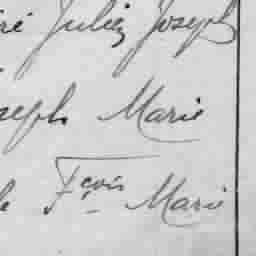 ré Julien Joseph
seph Marie
le Fçois Marie